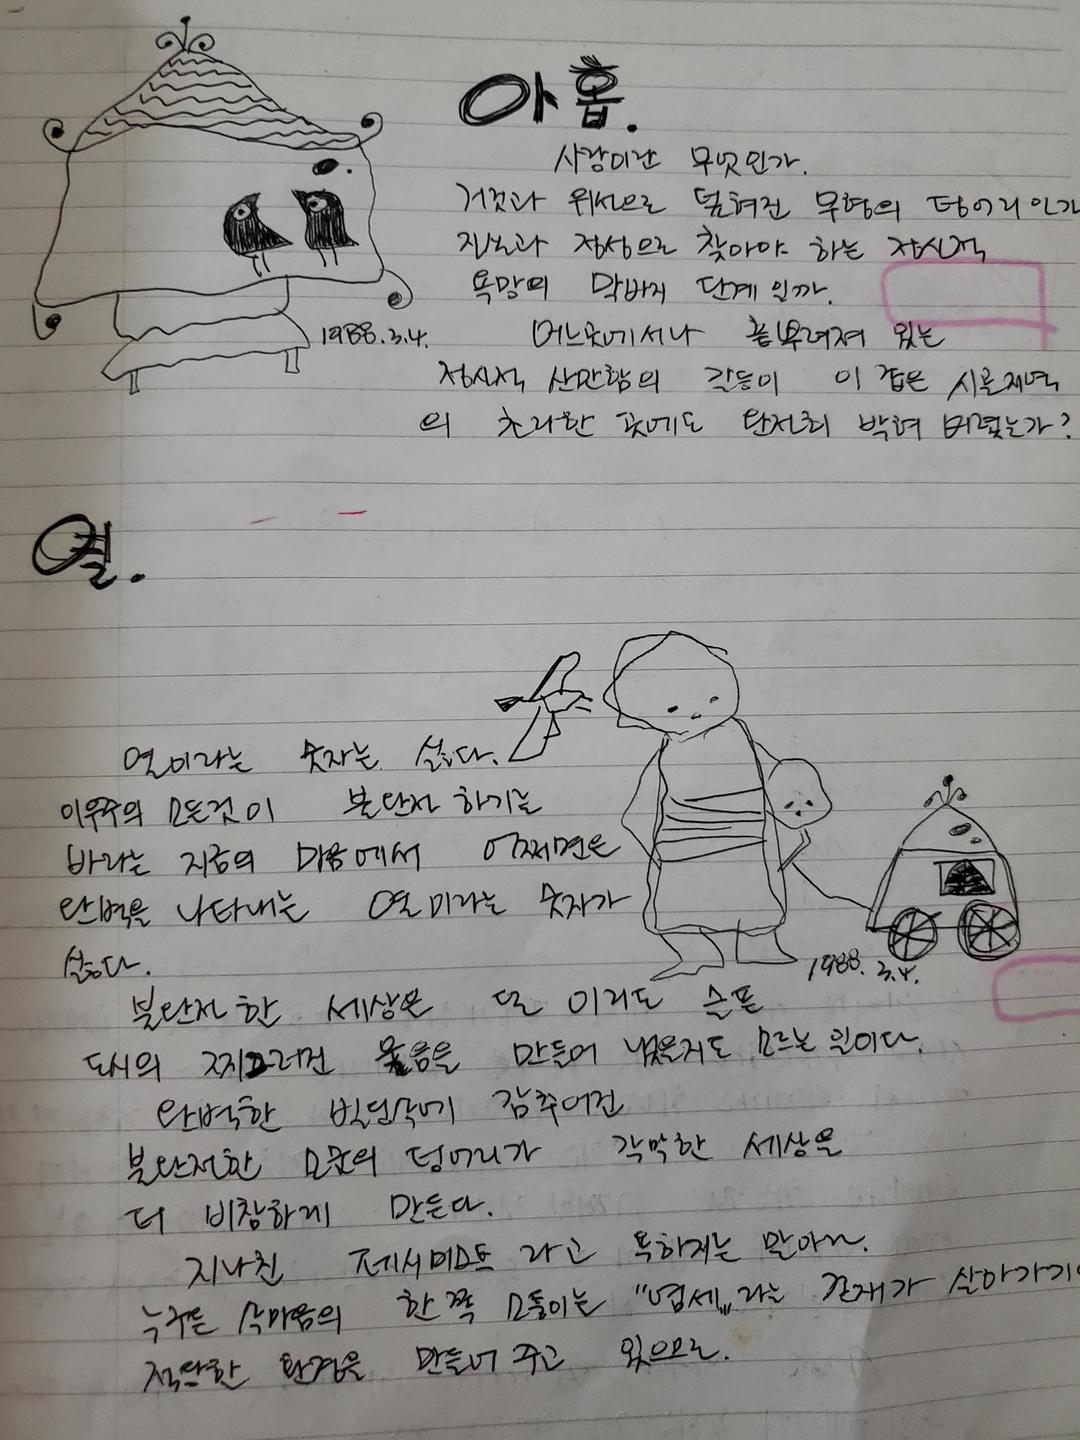 아홉.
사랑이란 무엇인가.
거짓과 위선으로 덮혀진 무형의 덩어리인가
진노과 정성으로 찾아야 하는 정신적
욕망의 막바지 단계인가.
어느곳에서나 흩뿌려져 있는
정신적 산만함의 갈등이 이 깊은 시골저녁
의 초라한 곳에도 완전히 박혀 버렸는가?
1988.3.4.
열.
열이라는 숫자는 싫다.
이우주의 모든것이 불완전 하기를
바라는 지금의 마음에서 어쩌면은
완벽을 나타내는 열이라는 숫자가
싫다.
1988. 3.4.
불완전한 세상은 덜 이리도 슬픈
도시의 찌그러진 웃음을 만들어 냈을지도 모르는 일이다.
완벽한 빌딩속에 감추어진
불완전한 모순의 덩어리가 각막한 세상을
더 비참하게 만든다.
지나친 페시미스트 라고 욕하지는 말아라.
누구든 속마음의 한쪽 모퉁이는 "염세"라는 존재가 살아가기에
적당한 환경을 만들어 주고 있으므로.